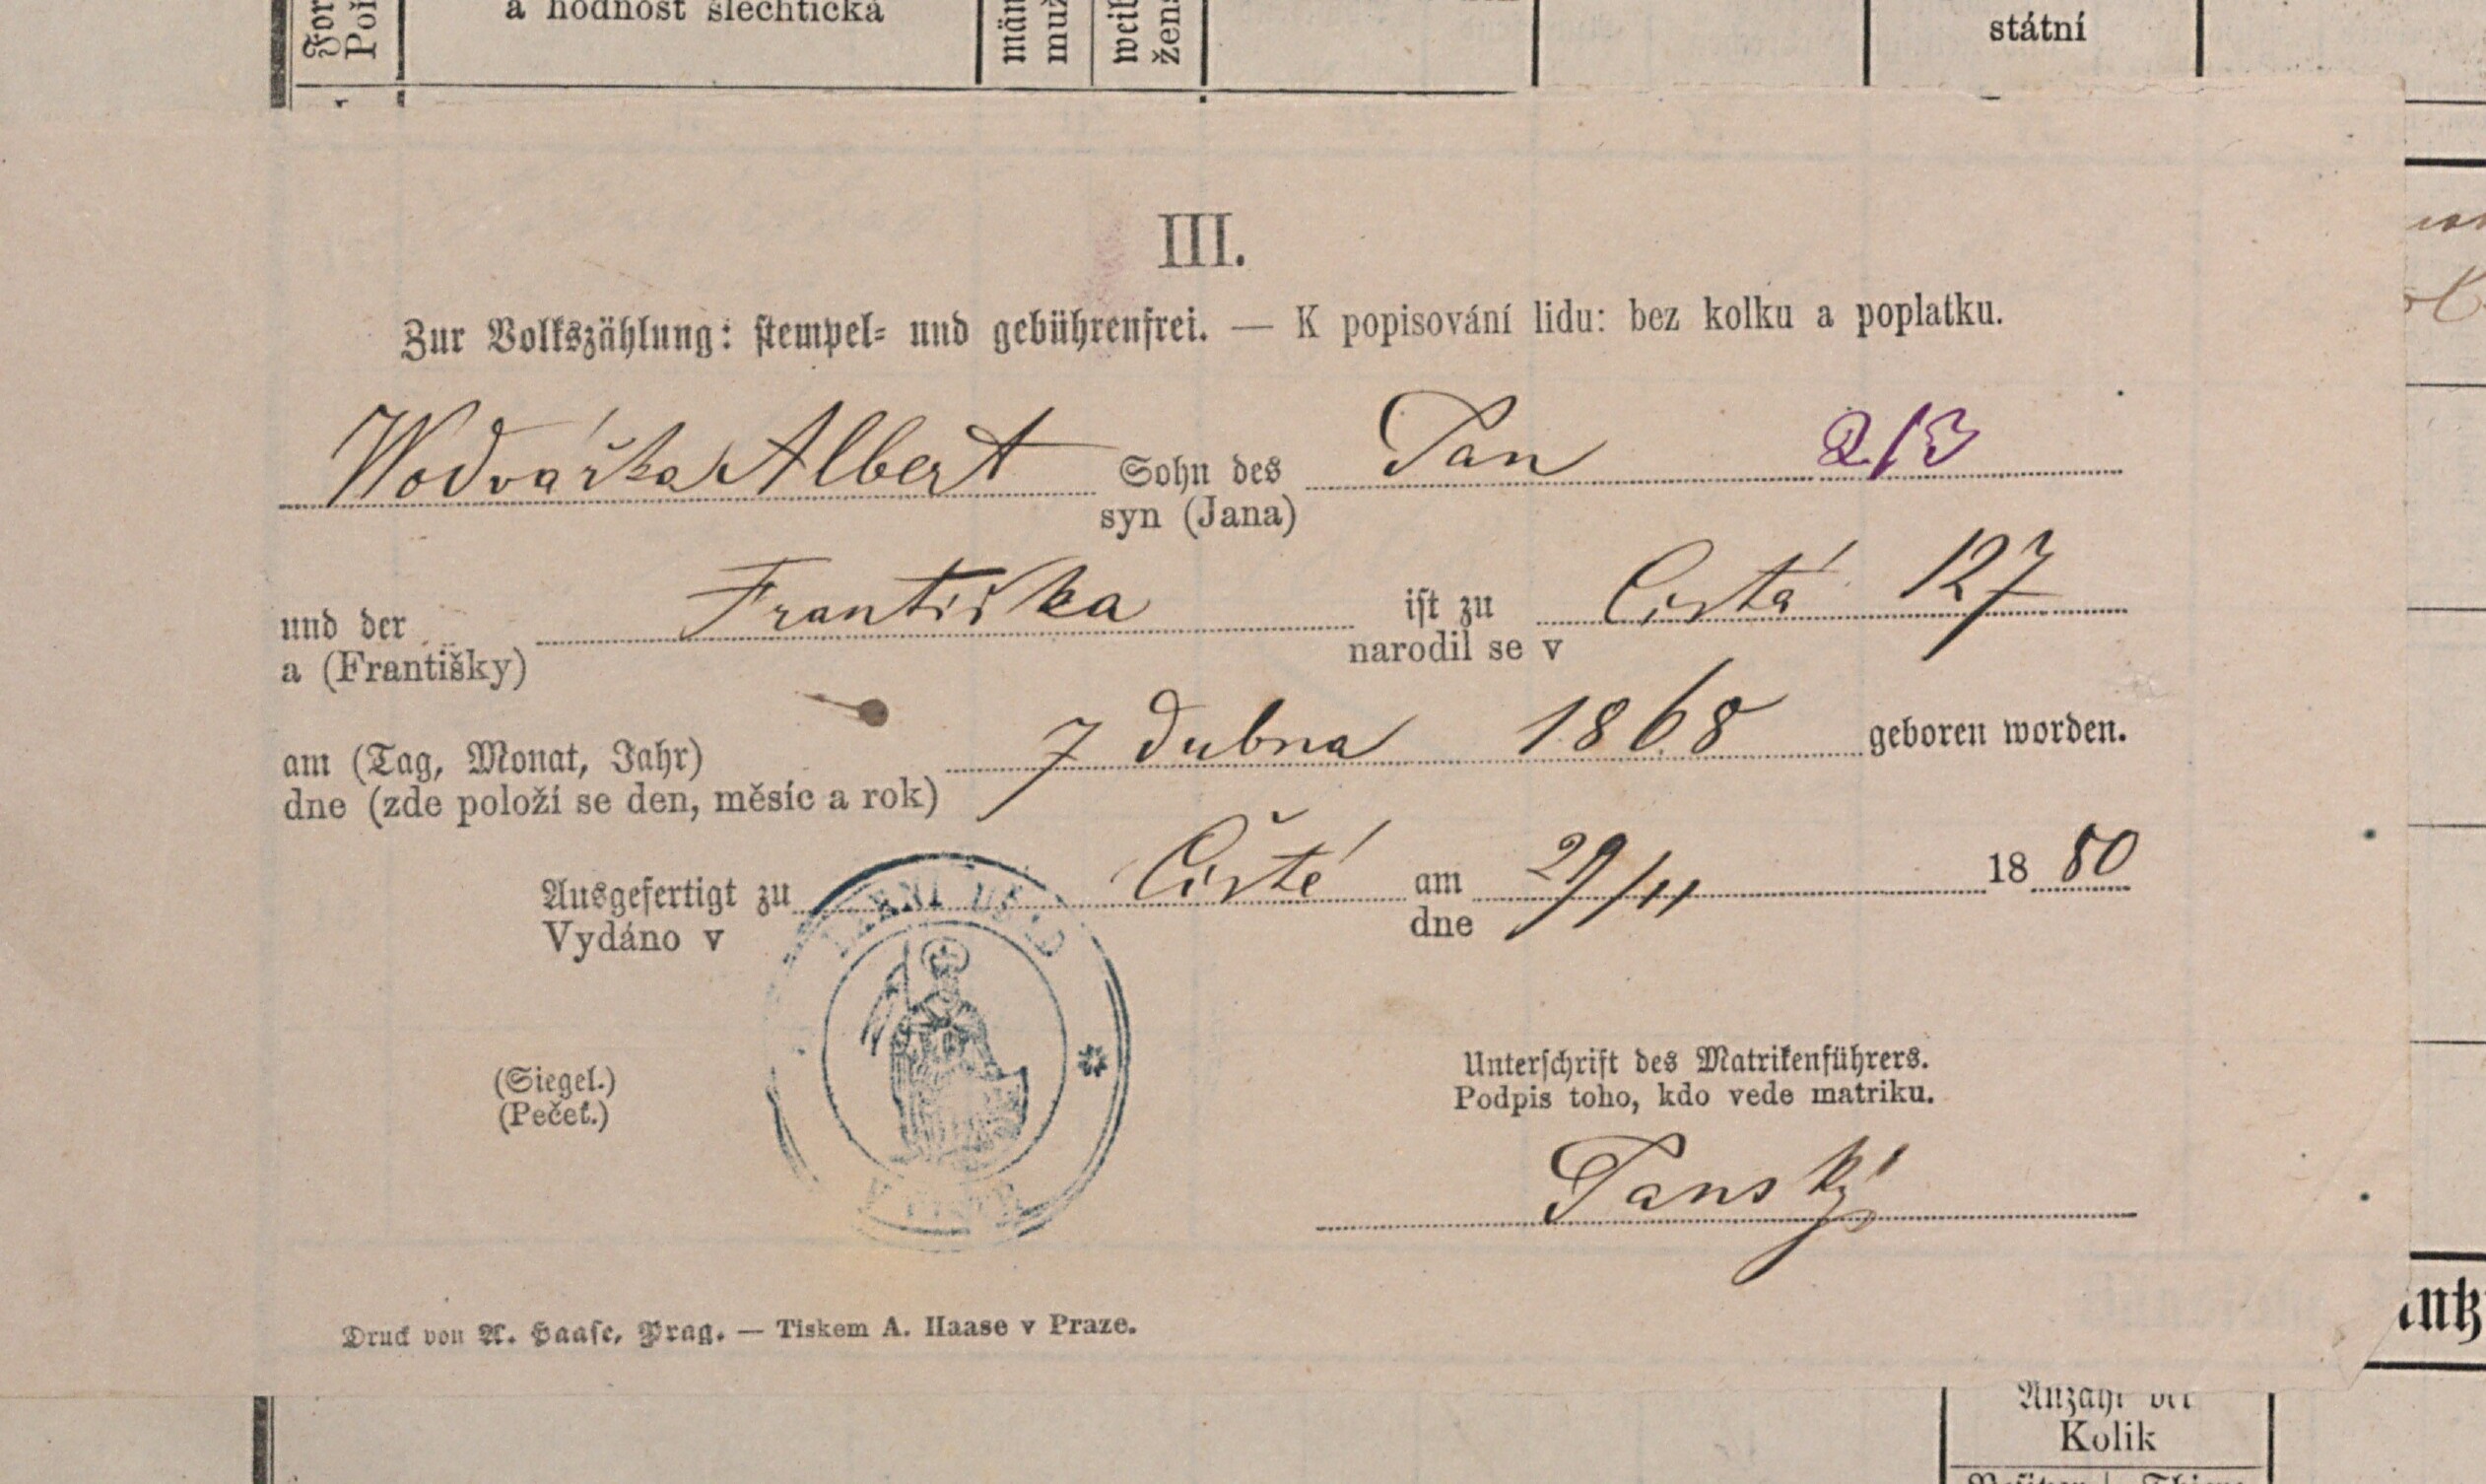 a hodnost šlechtická
státní
III.
Zur Volkszählung: stempel- und gebührenfrei. — K popisování lidu: bez kolku a poplatku.
Wodvářka Albert Sohn des Jan 213
syn (Jana)
und der Františka ist zu Čistá 127
a (Františky) narodil se v
am (Tag, Monat, Jahr) 7 dubna 1868 geboren worden.
dne (zde položí se den, měsíc a rok)
Ausgefertigt zu Čisté am 29/11 1880
Vydáno v dne
(Siegel.)
(Pečeť.)
Unterschrift des Matrikenführers.
Podpis toho, kdo vede matriku.
Janský
Druck von A. Haase, Prag. — Tiskem A. Haase v Praze.
Anzahl der
Kolik